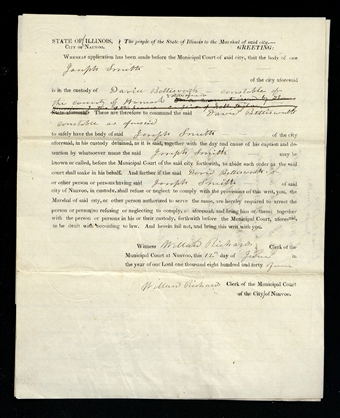 STATE OF ILLINOIS, The people of the State of Illinois to the Marshal of said city—
CITY OF NAUVOO. GREETING:
WHEREAS application has been made before the Municipal Court of said city, that the body of one
Joseph Smith
of the city aforesaid
is in the custody of David Bettisworth constable of
the county of Hancock
State aforesaid These are therefore to command the said David Bettisworth
constable as foresaid
to safely have the body of said Joseph Smith of the city
aforesaid, in his custody detained, as it is said, together with the day and cause of his caption and de-
tention by whatsoever name the said Joseph Smith may be
known or called, before the Municipal Court of the said city forthwith, to abide such order as the said
court shall make in his behalf. And further if the said David Bettisworth
or other person or persons having said Joseph Smith of said
city of Nauvoo, in custody, shall refuse or neglect to comply with the provisions of this writ, you, the
Marshal of said city, or other person authorized to serve the same, are hereby required to arrest the
person or persons so refusing or neglecting to comply, as aforesaid, and bring him or them together
with the person or persons in his or their custody, forthwith before the Municipal Court, aforesaid,
to be dealt with according to law. And herein fail not, and bring this writ with you.
Witness Willard Richards, Clerk of the
Municipal Court at Nauvoo, this 12th day of June in
the year of our Lord one thousand eight hundred and forty four
Willard Richards Clerk of the Municipal Court
of the City of Nauvoo.